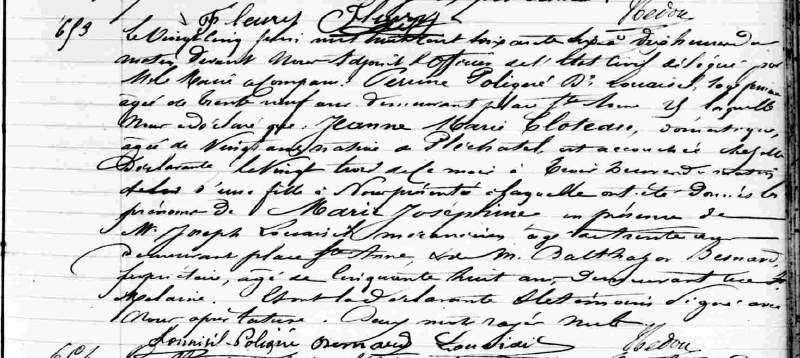 Fleury Fleury Hedou
653
Le vingt cinq juin mil huit cent soixante sept à dix heures du
matin devant Nous Adjoint Officier de l'Etat Civil délégué par
M. le Maire a comparu Perrine Poligné De Louaisil, sage femme
âgée de trente neuf ans demeurant place Ste Anne 25 laquelle
Nous a déclaré que Jeanne Marie Cloteau, domestique,
âgée de vingt ans native de Pléchatel, est accouchée chez elle
Déclarante le vingt trois de ce mois à heures du matin
d'une fille à Nous présentée à laquelle ont été donnés les
prénoms de Marie Joséphine en présence de
M. Joseph Louaisil mécanicien âgé de trente ans
demeurant place Ste Anne, & de M. Balthazar Besnard
propriétaire, âgé de cinquante huit ans, demeurant rue St
Melaine. Et ont la déclarante & les témoins signé avec
Nous après lecture. Deux mots rayés nuls
Louaisil Poligné Besnard Louaisil Hedou